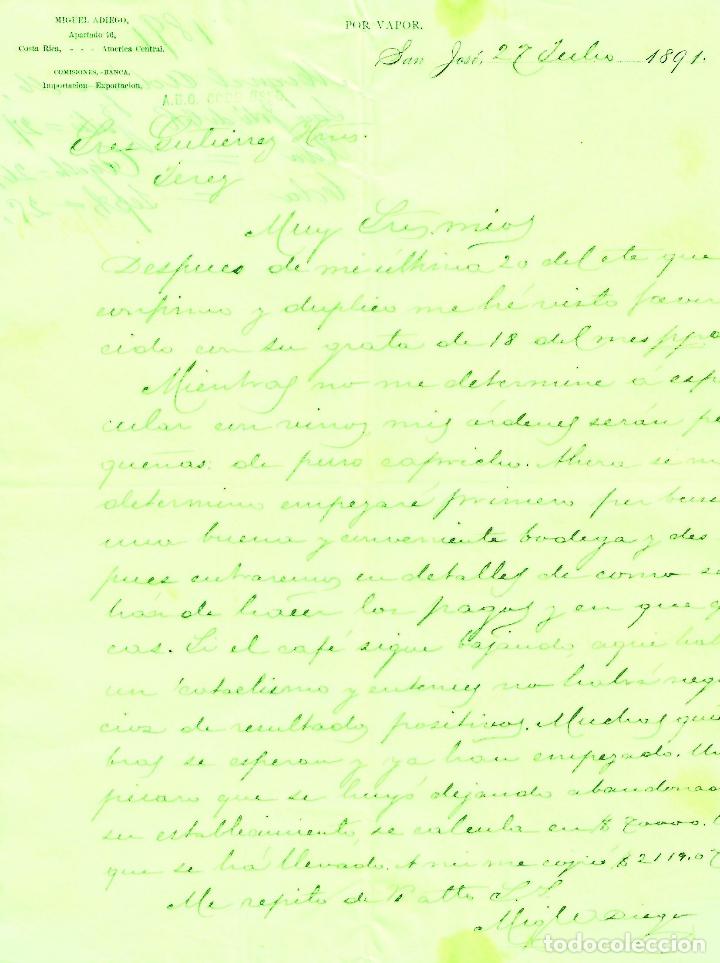 MIGUEL ADIEGO,
Apartado 76,
Costa Rica, - - - America Central.
COMISIONES,-BANCA,
Importacion-Exportacion,
POR VAPOR.
San José, 27 Julio 1891.
Sres Gutierrez Hnos.
Jerez
Muy Sres. mios
Despues de mi última 20 del cte que
confirmo y duplico me hé visto favore
cido con su grata de 18 del mes ppdo
Mientras no me determine á espe
cular con vinos, mis órdenes serán pe
queñas: de puro capricho. Ahora si me
determino empezaré primero por buscar
una buena y conveniente bodega y des
pues entraremos en detalles de como se
hán de hacer los pagos y en que
cas. Si el café sigue bajando, aqui
un cataclismo y entonces no habrá nego
cios de resultados positivos. Muchas quie
bras se esperan y ya hán empezado. Un
picaro que se huyó dejando abandonado
su establecimiento, se calcula en $ 70000.
que se há llevado. A mi me cogió $ 2119.07
Me repito de V atto S.S.
Migl Adiego
todocoleccion
todocoleccion.net